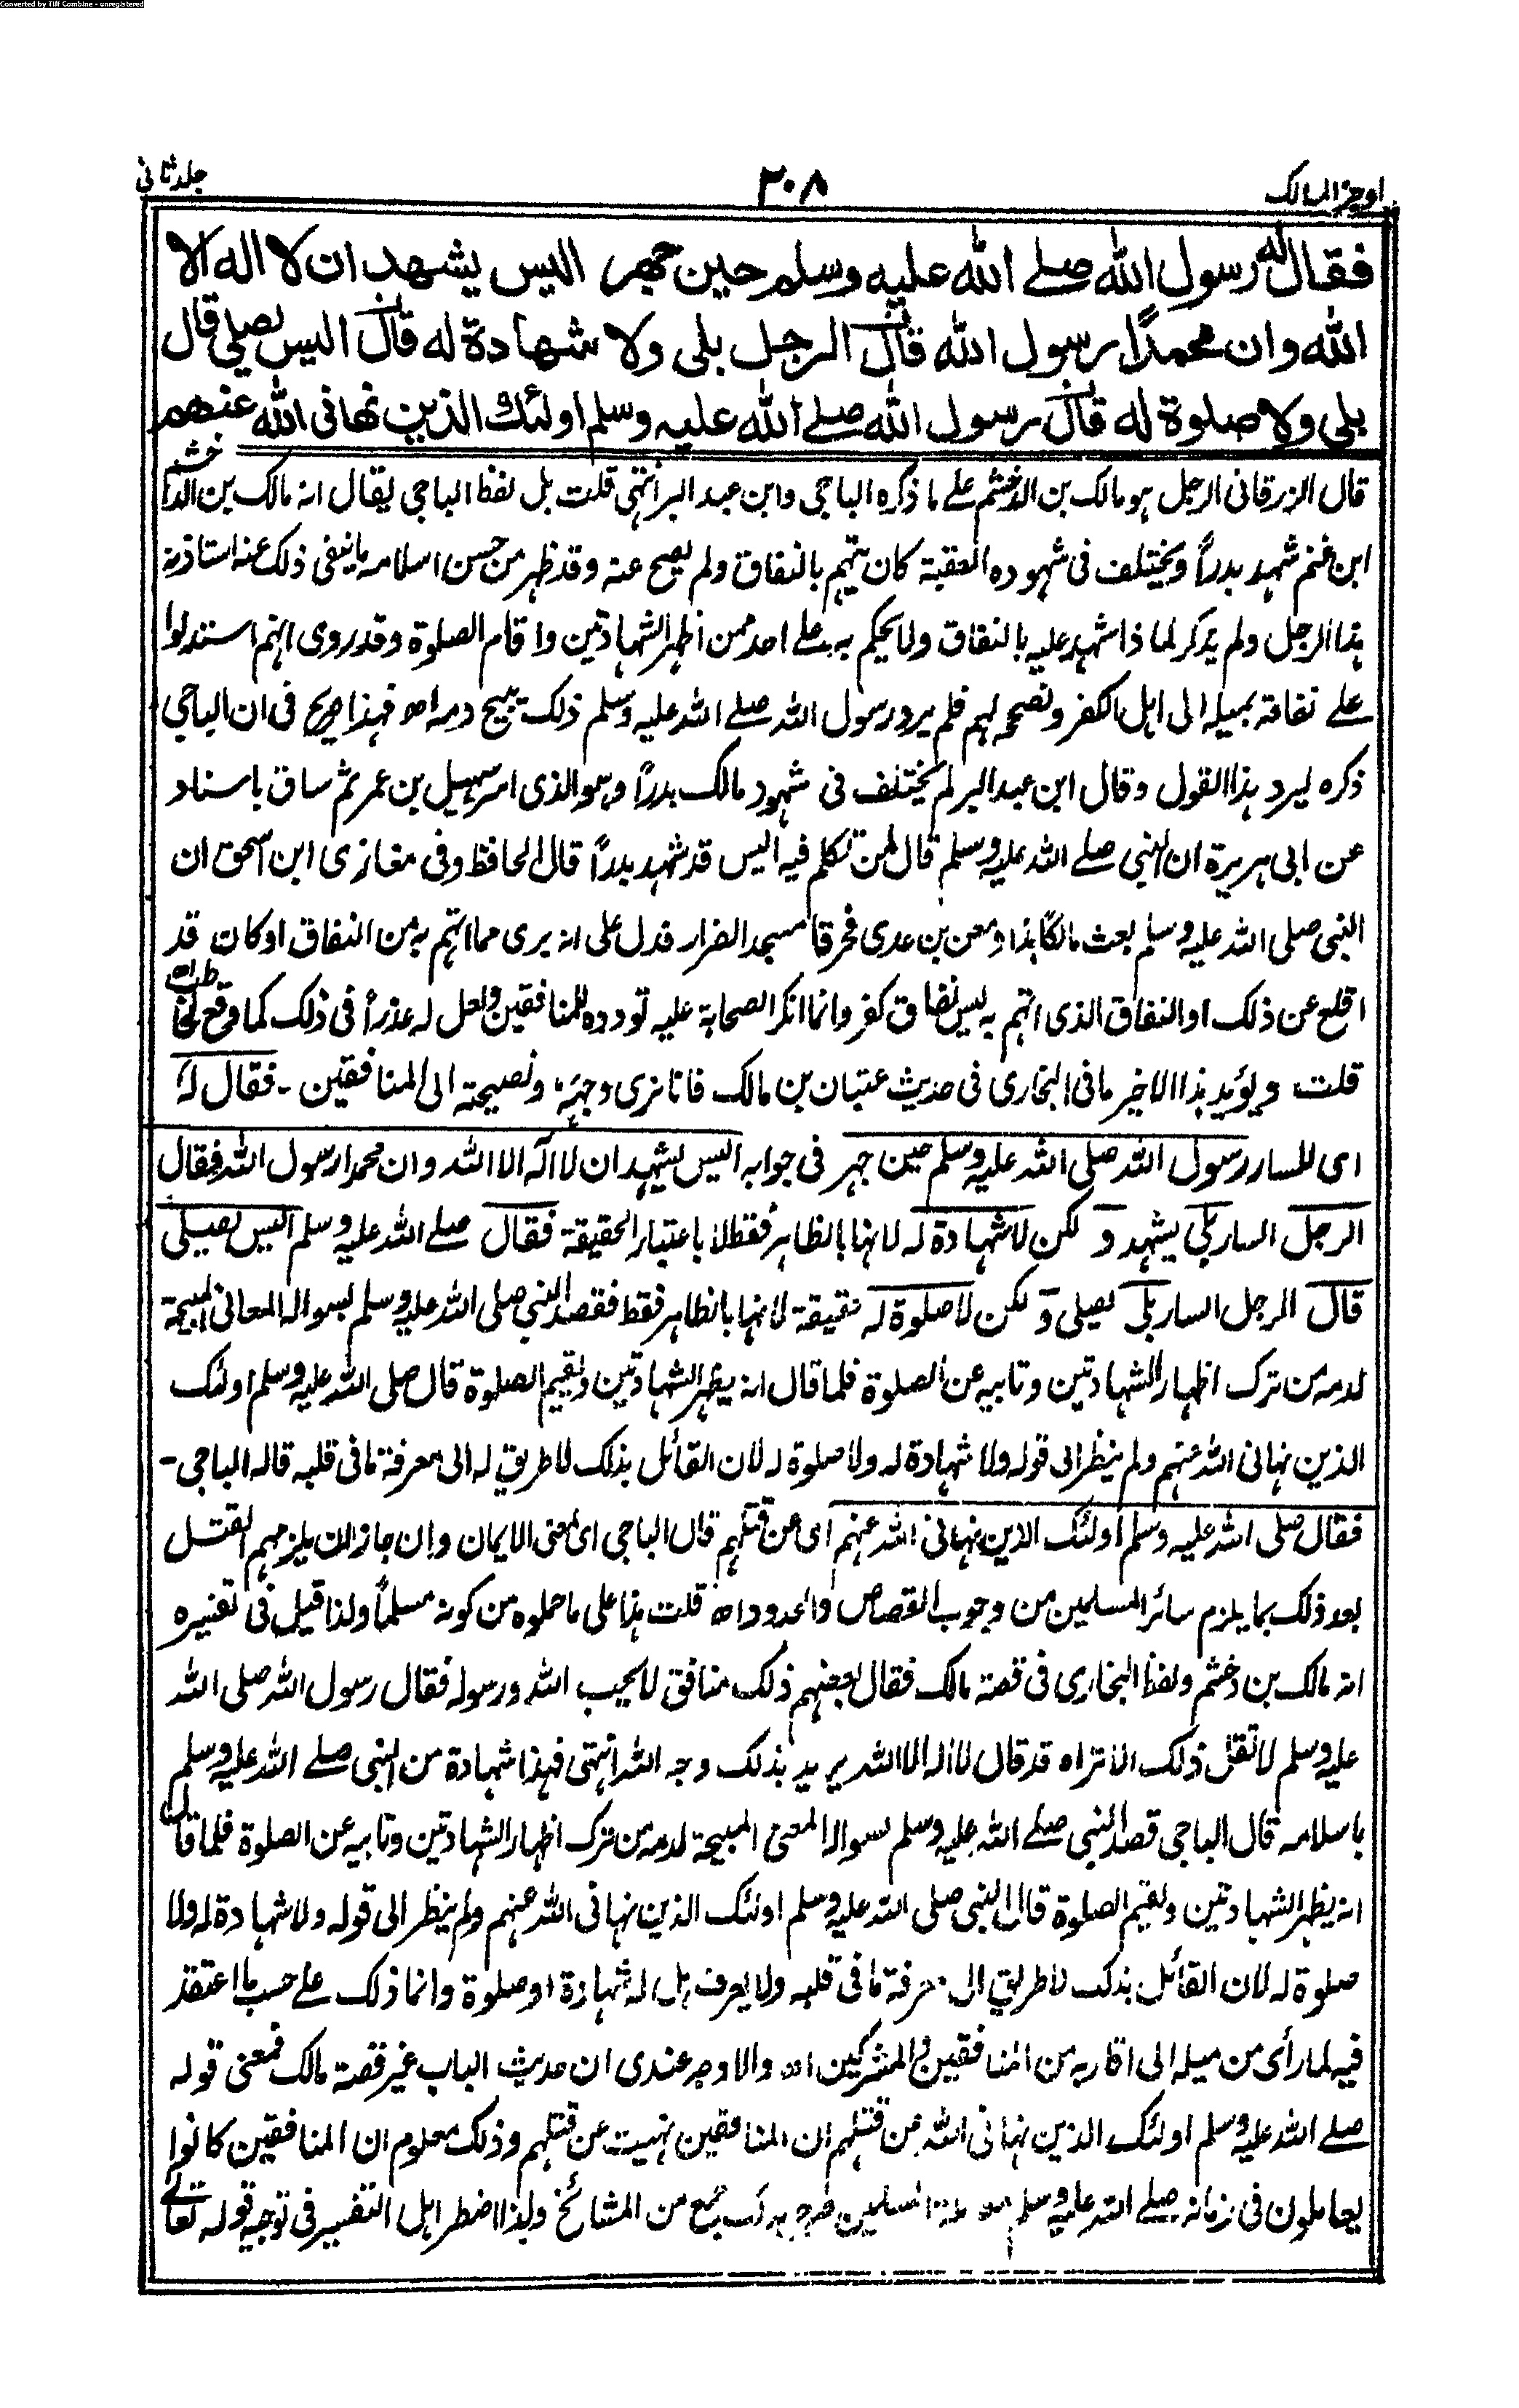 Converted by Tiff Combine - unregistered
اوجز المسالك
٣٠٨
جلد ثانی
فقال له رسول الله صلے الله عليه وسلم حين جهر اليس يشهد ان لا اله الا
الله وان محمدًا رسول الله فقال الرجل بلى ولا شهادة له فقال اليس يصلي قال
بلى ولا صلوة له فقال رسول الله صلے الله عليه وسلم اولئك الذين نهانى الله عنهم
قال الزرقانى الرجل ہو مالك بن الدخشم علے ما ذكره الباجى وابن عبد البر انتہى قلت بل لفظ الباجى يقال انہ مالك بن الدخشم
ابن غنم شہد بدراً ويختلف فى شہوده العقبة كان يتہم بالنفاق ولم يصح عنہ وقد ظہر من حسن اسلامہ ما ينفى ذلك عنہ استاذنہ
ہذا الرجل ولم يذكر لماذا شہد عليہ بالنفاق ولا يحكم بہ علے احد ممن اظہر الشہادتين واقام الصلوة وقد روى انہم استدلوا
علے نفاقہ بميلہ الى اہل الكفر ونصحہ لہم فلم ير رسول اللہ صلے اللہ عليہ وسلم ذلك يبيح دمہ اھ فہذا صريح فى ان الباجى
ذكره ليرد ہذا القول وقال ابن عبد البر لم يختلف فى شہود مالك بدراً وہو الذى اسر سہيل بن عمر ثم ساق باسناد
عن ابى ہريرة ان النبى صلے اللہ عليہ وسلم قال لمن تكلم فيہ اليس قد شہد بدراً قال الحافظ وفى مغازى ابن اسحق ان
النبى صلى اللہ عليہ وسلم بعث مالكًا ہذا ومعن بن عدى فحرقا مسجد الضرار فدل على انہ برى مما اتہم بہ من النفاق او كان قد
اقلع عن ذلك او النفاق الذى اتہم بہ ليس نفاق كفر وانما انكر الصحابة عليہ تودده للمنافقين ولعل لہ عذراً فى ذلك كما وقع لحاطب اھ
قلت ويؤيد ہذا الاخير ما فى البخارى فى حديث عتبان بن مالك فانا نرى وجہہ ونصيحتہ الى المنافقين - فقال لہ
اى للسار رسول اللہ صلى اللہ عليہ وسلم حين جہر فى جوابہ اليس يشہد ان لا الہ الا اللہ وان محمدا رسول اللہ فقال
الرجل السار بلى يشہد و لكن لا شہادة لہ لانہا بالظاہر فقط لا باعتبار الحقيقة فقال صلے اللہ عليہ وسلم اليس يصلى
قال الرجل السار بلى يصلى و لكن لا صلوة لہ حقيقة لانہا بالظاہر فقط فقصد النبى صلى اللہ عليہ وسلم بسوالہ المعانى المبيحة
لدمہ من ترك اظہار الشہادتين وتابيہ عن الصلوة فلما قال انہ يظہر الشہادتين ويقيم الصلوة قال صلى اللہ عليہ وسلم اولئك
الذين نہانى اللہ عنہم ولم ينظر الى قولہ ولا شہادة لہ ولا صلوة لہ لان القائل بذلك لا طريق لہ الى معرفة ما فى قلبہ قالہ الباجى -
فقال صلى اللہ عليہ وسلم اولئك الذين نہانى اللہ عنہم اى عن قتلہم قال الباجى اى لمعنى الايمان وان جاز ان يلزمہم القتل
بعد ذلك بما يلزم سائر المسلمين من وجوب القصاص والحدود اھ قلت ہذا على ما حملوه من كونہ مسلماً ولذا قيل فى تفسيره
انہ مالك بن دخشم ولفظ البخارى فى قصة مالك فقال بعضہم ذلك منافق لا يحب اللہ ورسولہ فقال رسول اللہ صلى اللہ
عليہ وسلم لا تقل ذلك الا تراه قد قال لا الہ الا اللہ يريد بذلك وجہ اللہ انتہى فہذا شہادة من النبى صلے اللہ عليہ وسلم
باسلامہ قال الباجى قصد النبى صلے اللہ عليہ وسلم بسوالہ المعنى المبيحة لدمہ من ترك اظہار الشہادتين وتابيہ عن الصلوة فلما قال
انہ يظہر الشہادتين ويقيم الصلوة قال النبى صلى اللہ عليہ وسلم اولئك الذين نہانى اللہ عنہم ولم ينظر الى قولہ ولا شہادة لہ ولا
صلوة لہ لان القائل بذلك لا طريق الى معرفة ما فى قلبہ ولا يعرف ہل لہ شہادة او صلوة وانما ذلك علے حسب ما اعتقد
فيہ لما رأى من ميلہ الى اقاربہ من المنافقين والمشركين اھ والاوجہ عندى ان حديث الباب غير قصة مالك فمعنى قولہ
صلے اللہ عليہ وسلم اولئك الذين نہانى اللہ عن قتلہم ان المنافقين نہيت عن قتلہم وذلك معلوم ان المنافقين كانوا
يعاملون فى زمانہ صلے اللہ عليہ وسلم المسلمين جمع من المشائخ ولہذا اضطر اہل التفسير فى توجيہ قولہ تعالے